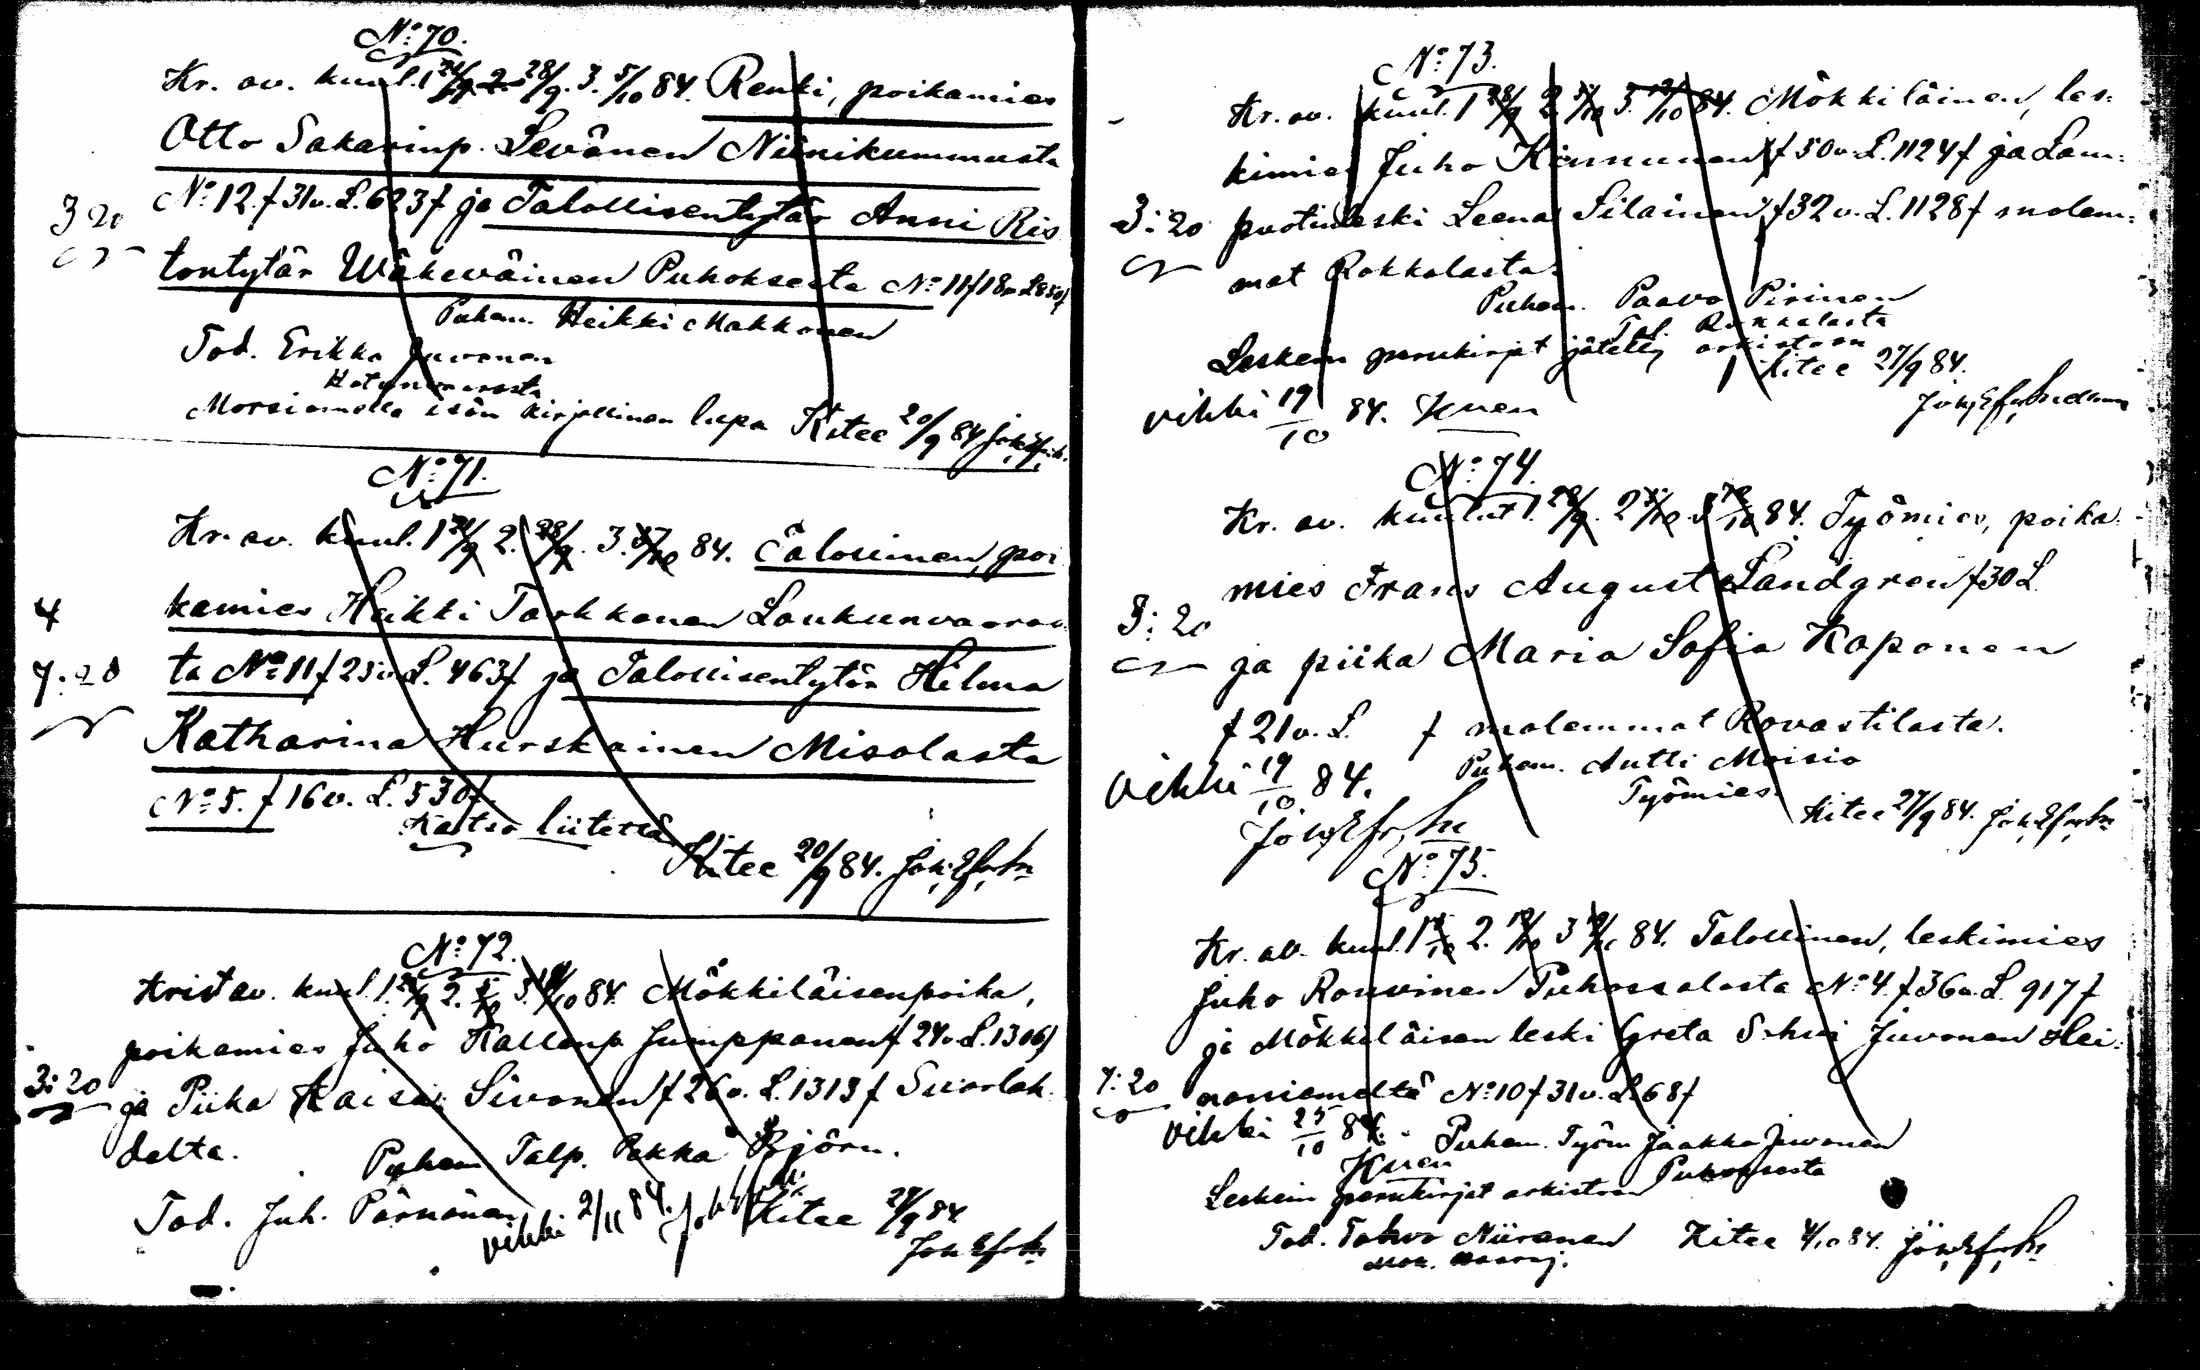 No: 70.
Kr. av. kuul. 1 21/9. 2. 28/9. 3. 5/10 84. Renki, poikamies
Otto Sakarinp. Levänen Niinikummusta
3 20
No: 12. f 31 v. L. 623 f ja Talollisentytär Anni Ris
tontytär Wäkeväinen Puhoksesta No 11 f 18 v L 850 f
Puhem. Heikki Makkonen
Tod. Erikka Juvonen
Morsiamella isän kirjallinen lupa Kitee 20/9 84
No: 71.
Kr. av. kuul. 1 21/9 2. 28/9. 3. 5/10 84. Talollinen, poi
4
kamies Heikki Tarkkonen Loukunvaaras
7:20
ta No: 11 f 25 v. L. 463 f ja Talollisentytär Hilma
Katharina Hurskainen Misolasta
No: 5. f 16 v. L. 530 f.
Katso liitettä
Kitee 20/9 84.
No: 72.
Krist av. kuul. 1. 28/9 2. 5/10 3. 84. Mökkiläisenpoika,
poikamies Juho Kallenp. Jumppanen f 24 v. L. 1306 f
3:20
ja Piika Kaisa Sivonen f 26 v. L. 1313 f Suorlah
delta.
Puhem Talp. Pekka Björn.
Tod. Juh. Pärnänen
vihki 2/11 84.
Kitee 27/9 84
No: 73.
Kr. av. kuul. 1 28/9 2. 5/10 3. 12/10 84. Mökkiläinen, les:
kimies Juho Kinnunen f 50 v. L. 1124 f ja Lam:
3:20
puotinleski Leena Silainen f 32 v. L. 1128 f molem:
mat Rokkalasta.
Puhem. Paavo Pirinen
Tal. Rokkalasta
Leskein perukirjat jätetty arkistoon
Kitee 27/9 84.
vihki 19/10 84.
No: 74.
Kr. av. kuulut 1. 28/9. 2 5/10 3 12/10 84. Työmies, poika
mies Frans August Landgren f 30 L.
3:20
ja piika Maria Sofia Kaponen
f 21 v. L. f molemmat Rovastilasta.
Puhem. Antti Moisio
Työmies.
vihki 19/10 84.
Kitee 27/9 84.
No: 75.
Kr. av. kuul. 1 5/10 2. 12/10 3 19/10 84. Talollinen, leskimies
Juho Rouvinen Puhossalosta No: 4. f 36 v. L. 917 f
ja Mökkiläisen leski Greta Juvonen Hei:
7:20
noniemeltä No: 10 f 31 v. L. 68 f
vihki 25/10 84.
Puhem. Työm Jaakko Juvonen
Puhoksesta
Leskein perukirjat arkistoon
Tod. Tahvo Niiranen Kitee 4/10 84.